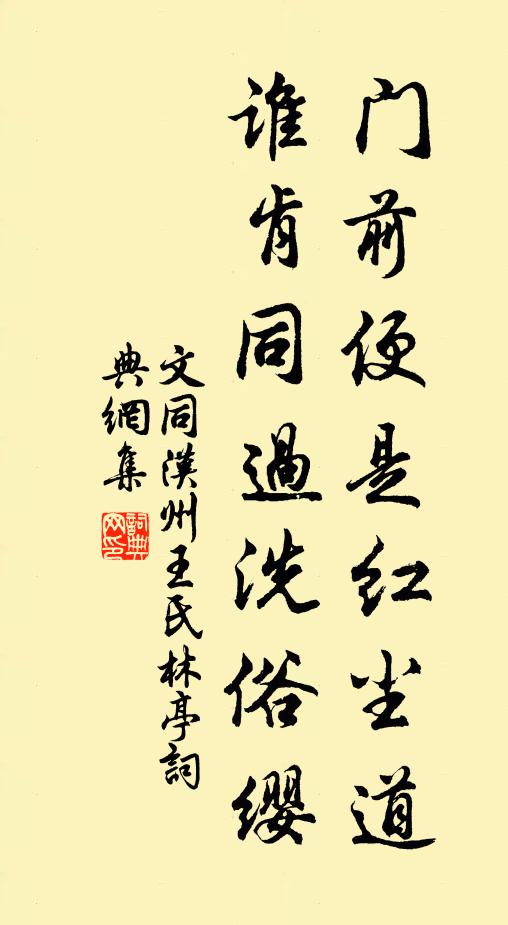 门前便是红尘道
谁肯同过洗俗缨
文同汉州王氏林亭詞
典網集
詞典
网印